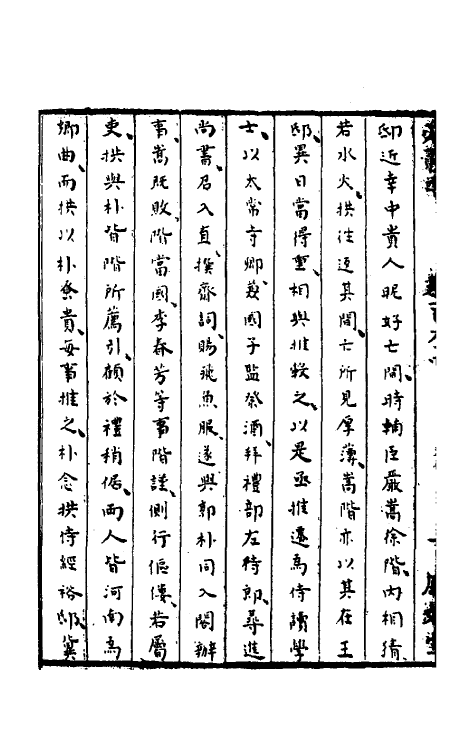 邸近幸中貴人昵好亡間時輔臣嚴嵩徐階內相猜
若水火拱往返其間亡所見厚薄嵩階亦以其在王
邸異日當得重相與推轂之以是亟推遷為侍讀學
士以太常寺卿兼國子監祭酒拜禮部左侍郎尋進
尚書召入直撰齋詞賜飛魚服遂與郭朴同入閣辦
事嵩既敗階當國李春芳等事階謹側行傴僂若屬
吏拱與朴皆階所薦引顧於禮稍倨兩人皆河南為
鄉曲而拱以朴耆貴每事推之朴念拱侍經裕邸冀